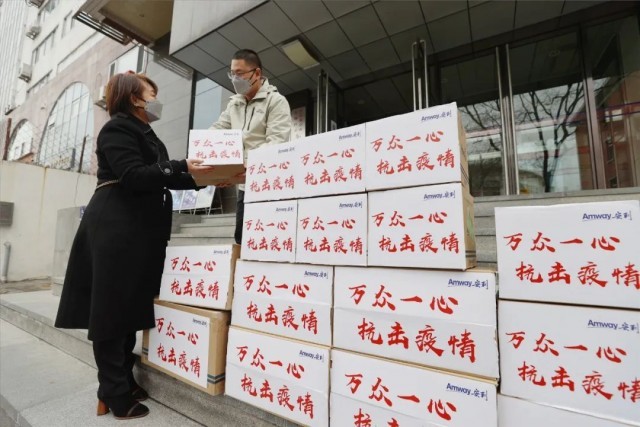 万众一心
抗击疫情
抗击疫情
万众一心
抗击疫情
Amway 安利
万众一心
抗击疫情
万众一心
抗击疫情
Amway 安利
万众一心
抗击疫情
Amway 安利
万众一心
抗击疫情
Amway 安利
万众一心
抗击疫情
万众一心
抗击疫情
Amway 安利
万众一心
抗击疫情
Amway 安利
万众一心
抗击疫情
Amway 安利
万众一心
抗击疫情
万众一心
抗击疫情
Amway 安利
万众一心
抗击疫情
Amway 安利
万众一心
抗击疫情
Amway 安利
万众一心
抗击疫情